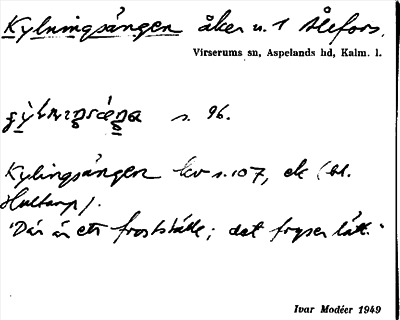 Kylningsängen åker u. 1 Ålefors.
Virserums sn, Aspelands hd, Kalm. l.
s. 96.
Kylingsängen lev s. 107, ek (bl.
Hultarp).
"Där är ett frostställe; det fryser lätt."
Ivar Modéer 1949